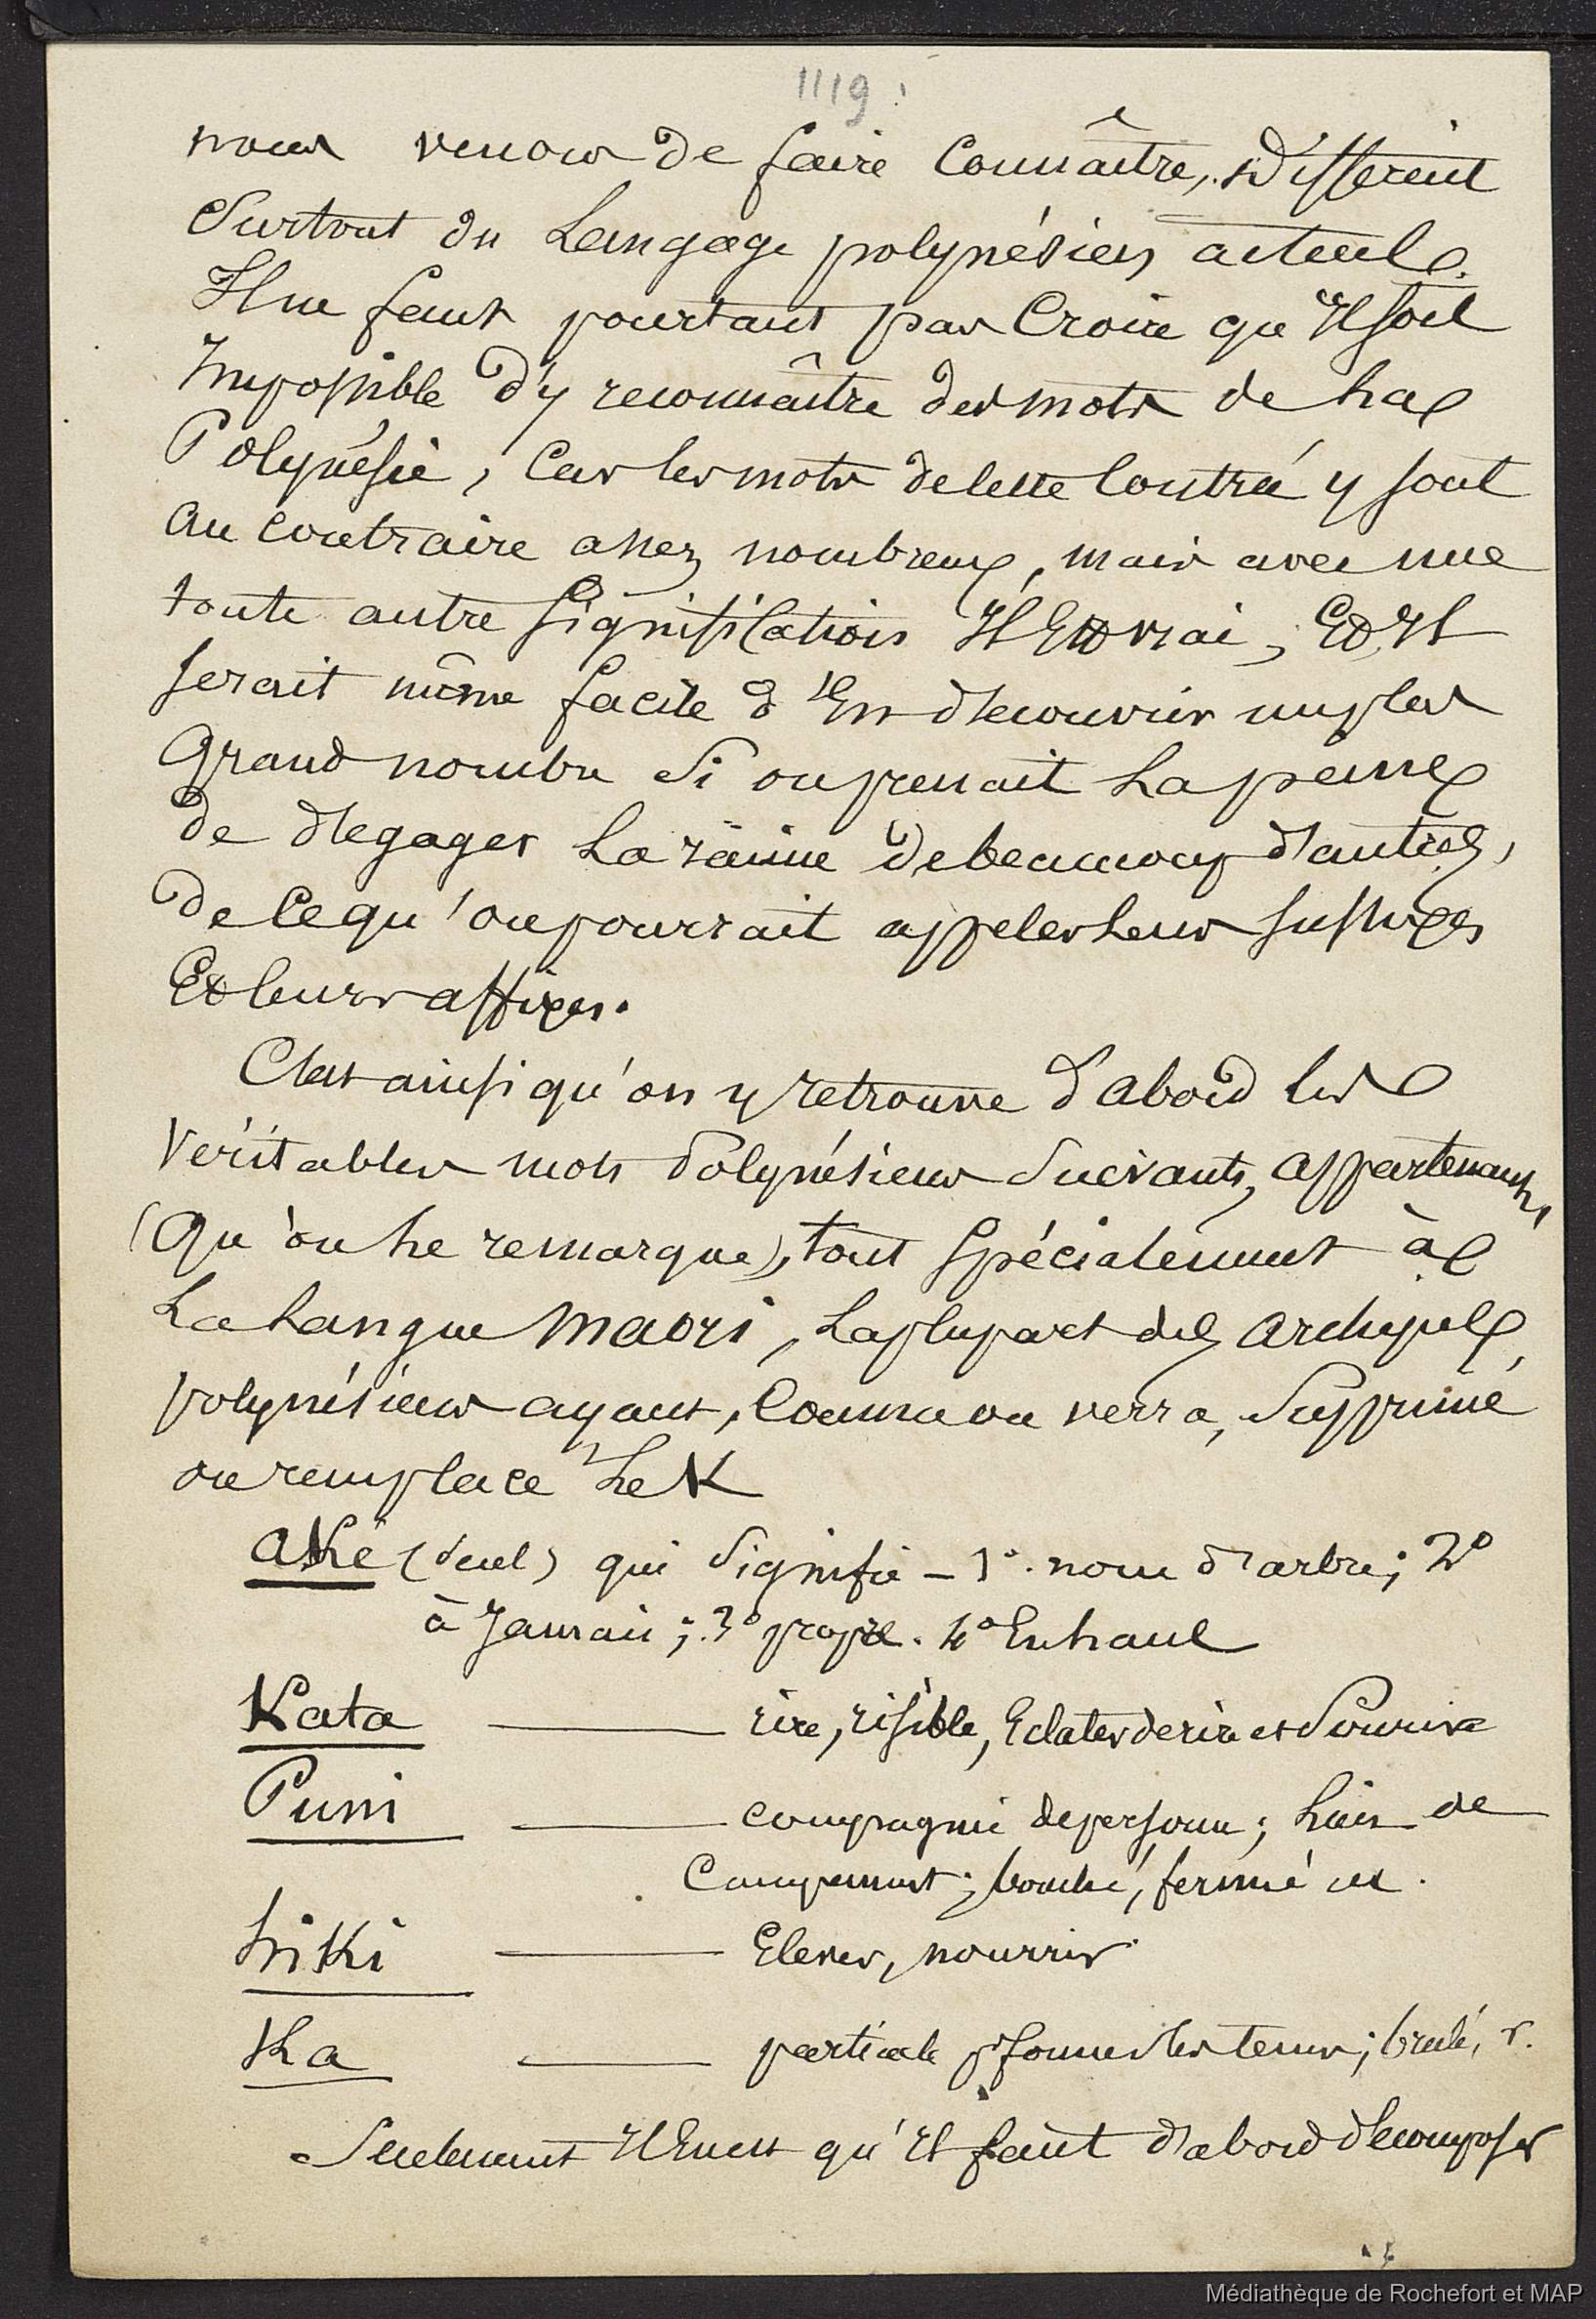 1119.
nous venons de faire Connaître, Différent
Surtout du Langage polynésien actuel.
Il ne faut pourtant pas Croire qu'Il soit
Impossible d'y reconnaître des mots de La
Polynésie, Car les mots de cette Contrée y sont
au contraire assez nombreux, mais avec une
toute autre signification Il Est vrai, Et Il
serait même facile d'En découvrir un plus
Grand nombre Si on prenait La peine
de dégager La racine de beaucoup d'autres,
de Ce qu'on pourrait appeler Leurs suffixes
Et leurs affixes.
C'est ainsi qu'on y retrouve d'abord les
Véritables mots Polynésiens Suivants, appartenant,
(Qu'on Le remarque), tout spécialement à
La Langue Maori, La plupart des archipels
polynésiens ayant, Comme on verra, Supprimé
ou remplacé Le K
aKe (seul) qui Signifie – 1° nom d'arbre; 2°
à Jamais; 3° propre. 4° En haut
Kata — rire, risible, Eclater de rire et Sourire
Puni — compagnie de personne; Lieu de
Campement; bouché, fermé
whiKi — Elever, nourrir
Ka — particule p. former les tems; brulé,
Seulement Il En est qu'Il faut d'abord décomposer
Médiathèque de Rochefort et MAP